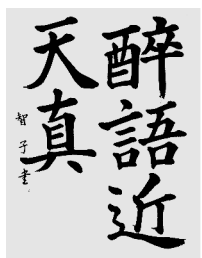 醉語近
天真
智子書